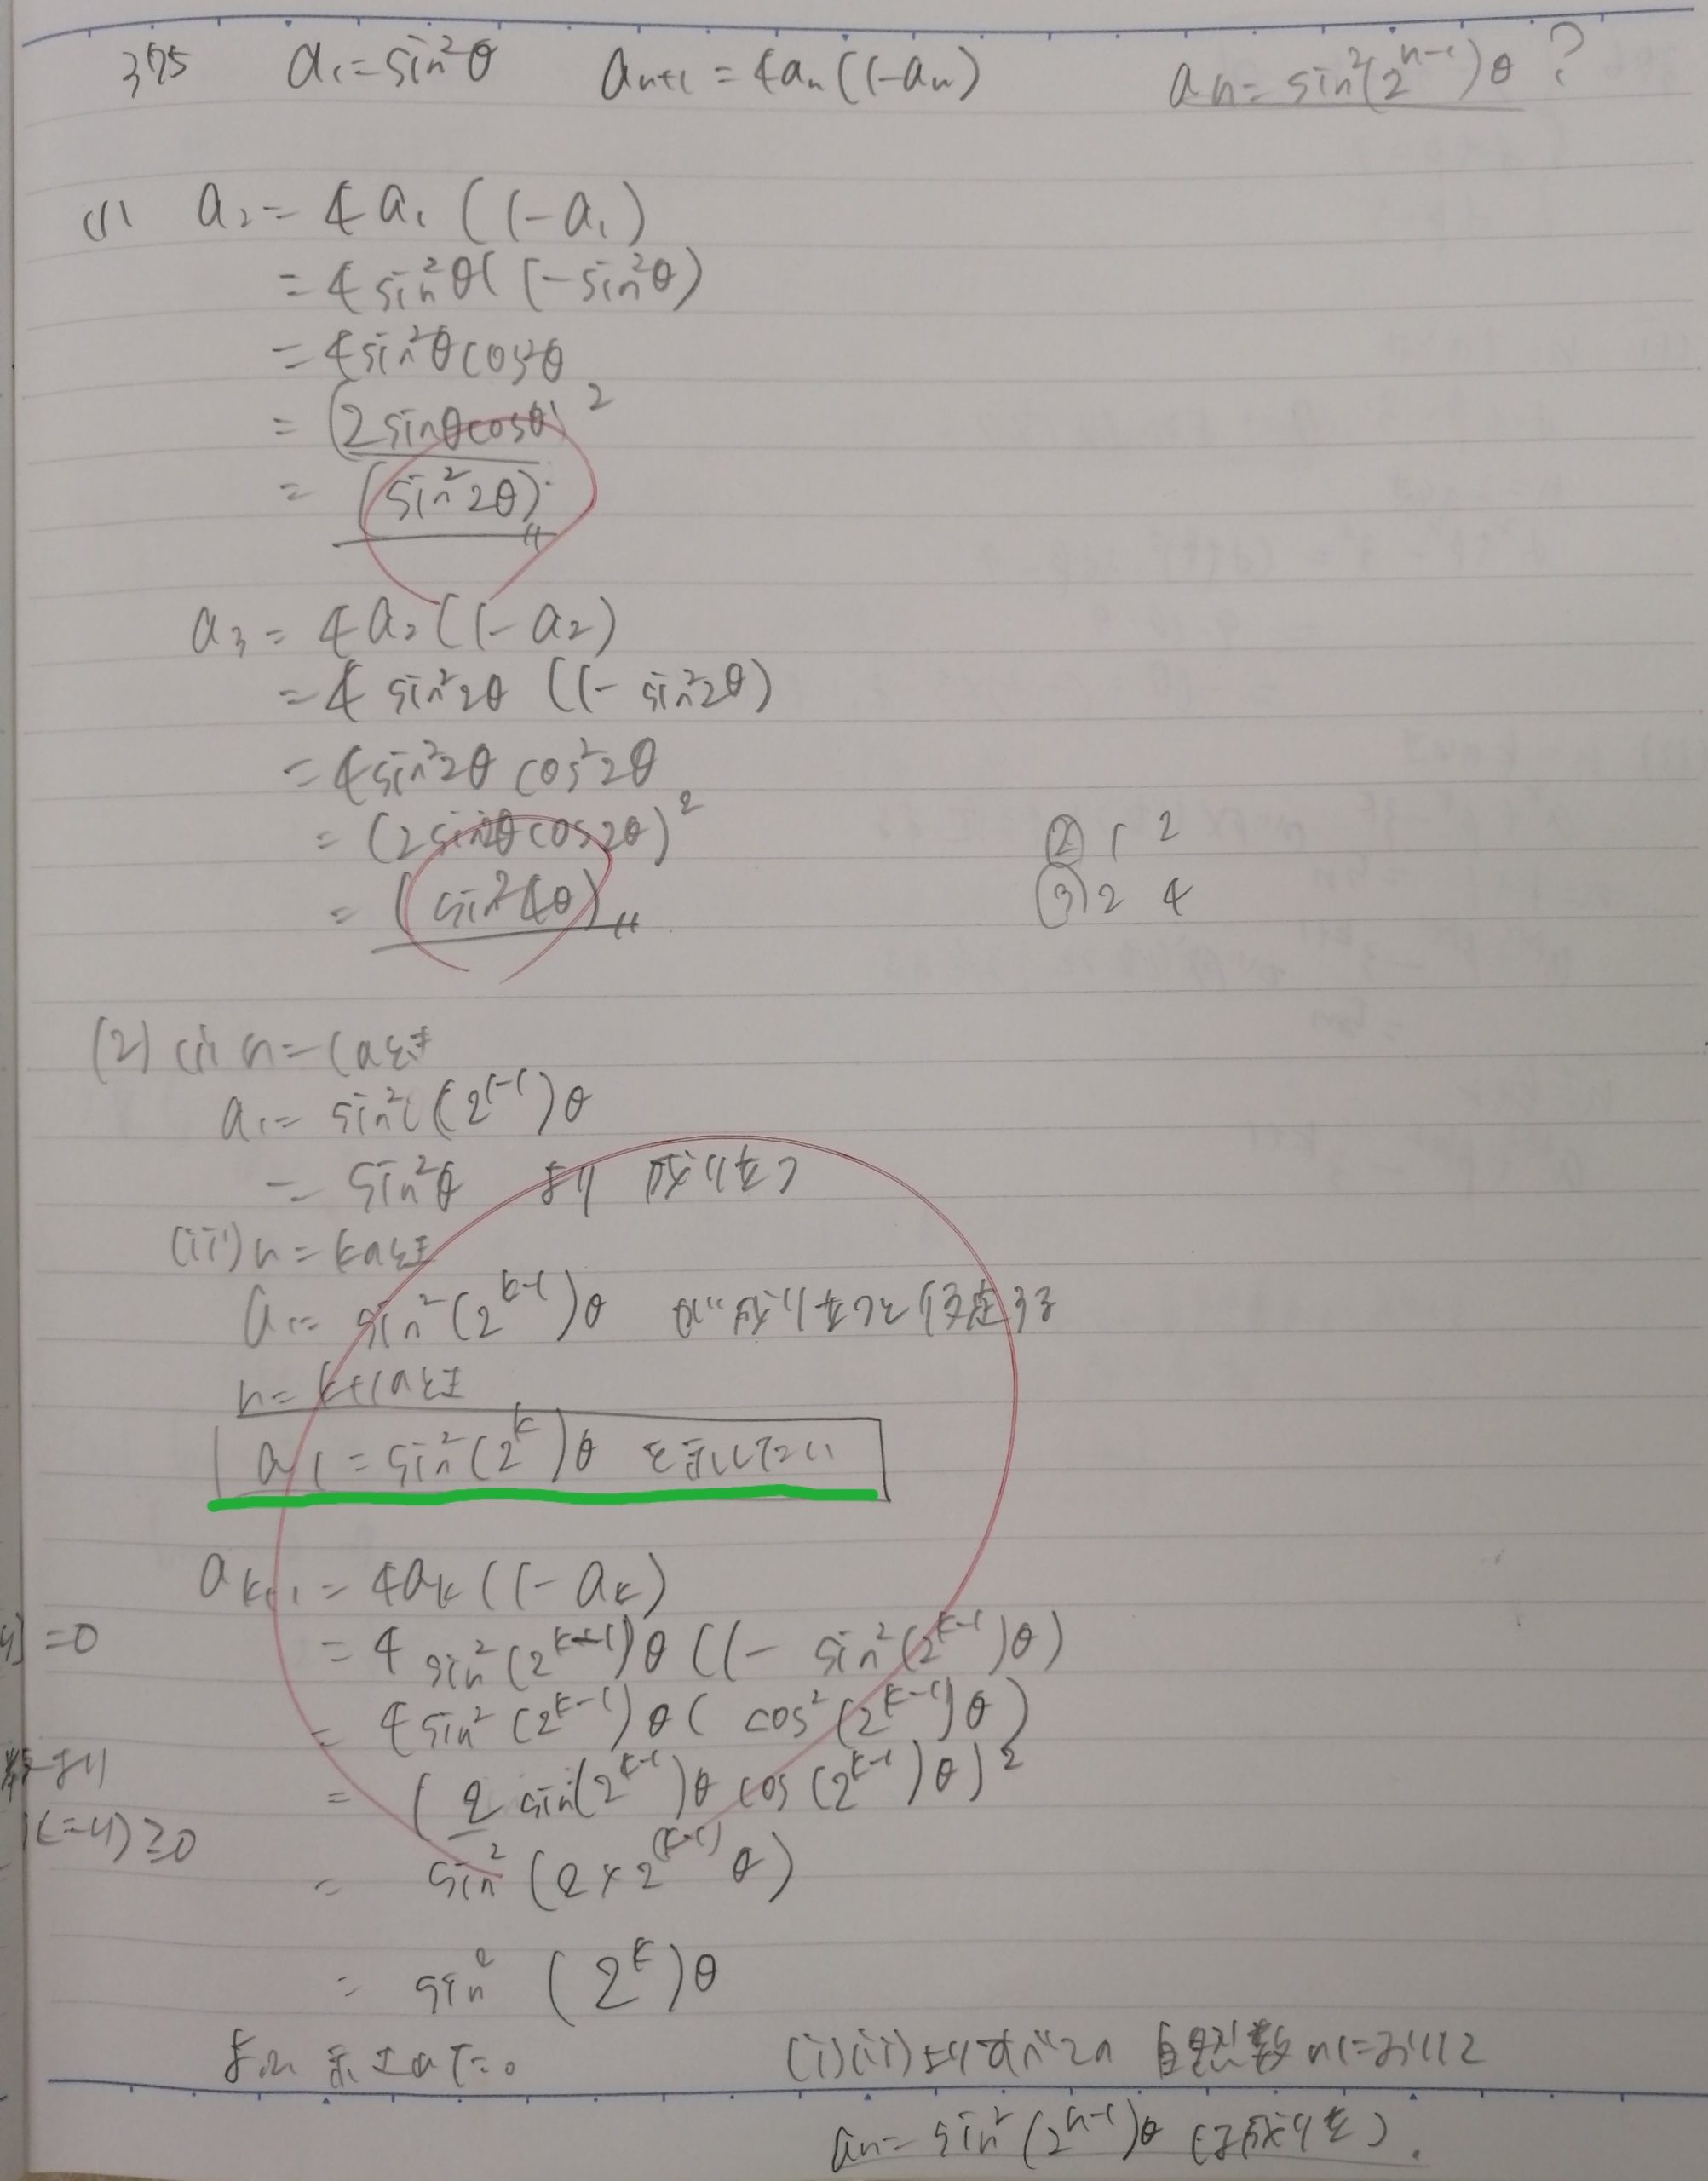 375 a₁=sin²θ aₙ₊₁=4aₙ(1-aₙ) aₙ=sin²(2ⁿ⁻¹)θ ?
(1) a₂=4a₁(1-a₁)
=4sin²θ(1-sin²θ)
=4sin²θcos²θ
=(2sinθcosθ)²
=(sin²2θ)
a₃=4a₂(1-a₂)
=4sin²2θ(1-sin²2θ)
=4sin²2θcos²2θ
=(2sin2θcos2θ)²
=(sin²4θ)
② 1 2
③ 2 4
(2)(i) n=1のとき
a₁=sin²(2¹⁻¹)θ
=sin²θ より 成り立つ
(ii) n=kのとき
a₁=sin²(2ᵏ⁻¹)θ が成り立つと仮定する
n=k+1のとき
a₁=sin²(2ᵏ)θ を示したい
aₖ₊₁=4aₖ(1-aₖ)
=4sin²(2ᵏ⁻¹)θ(1-sin²(2ᵏ⁻¹)θ)
=4sin²(2ᵏ⁻¹)θ(cos²(2ᵏ⁻¹)θ)
=(2sin(2ᵏ⁻¹)θcos(2ᵏ⁻¹)θ)²
=sin²(2×2⁽ᵏ⁻¹⁾θ)
=sin²(2ᵏ)θ
よって 示された。
(i)(ii)よりすべての 自然数nにおいて
aₙ=sin²(2ⁿ⁻¹)θ は成り立つ.
=0
より
≧0